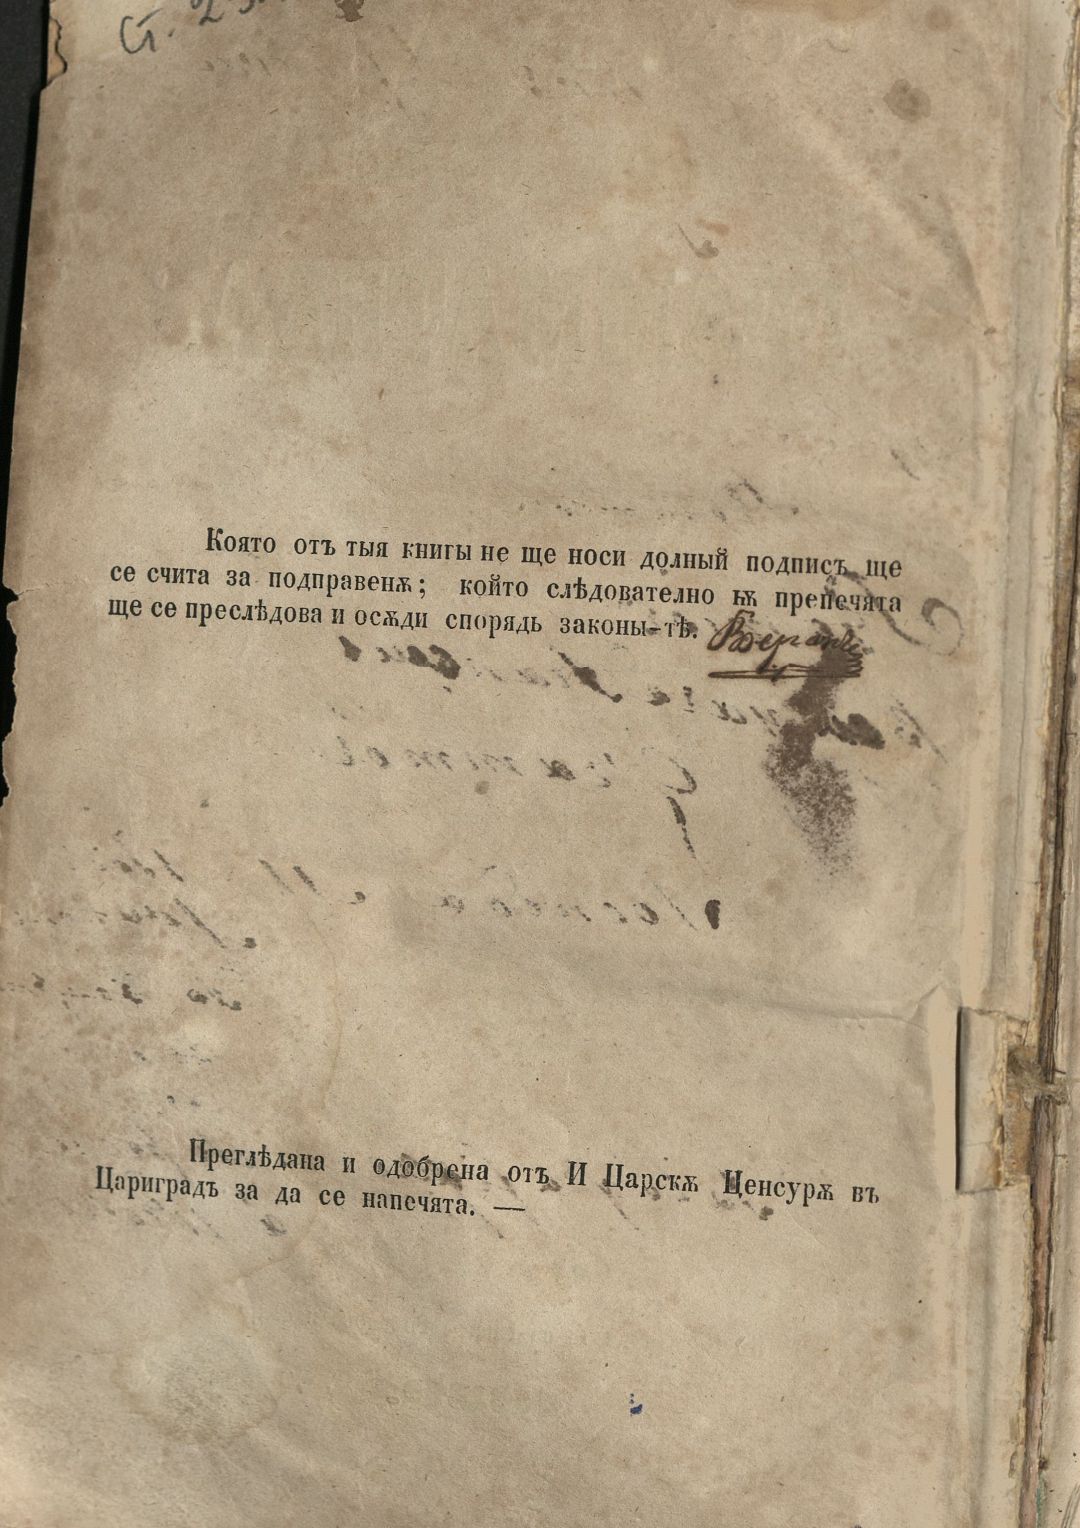 Ст.
Която отъ тыя книгы не ще носи долный подписъ ще
се счита за подправенѫ; който слѣдователно ѭ препечята
ще се преслѣдова и осѫди спорядь законы-тѣ.
Преглѣдана и одобрена отъ И Царскѫ Ценсурѫ въ
Цариградъ за да се напечята. —